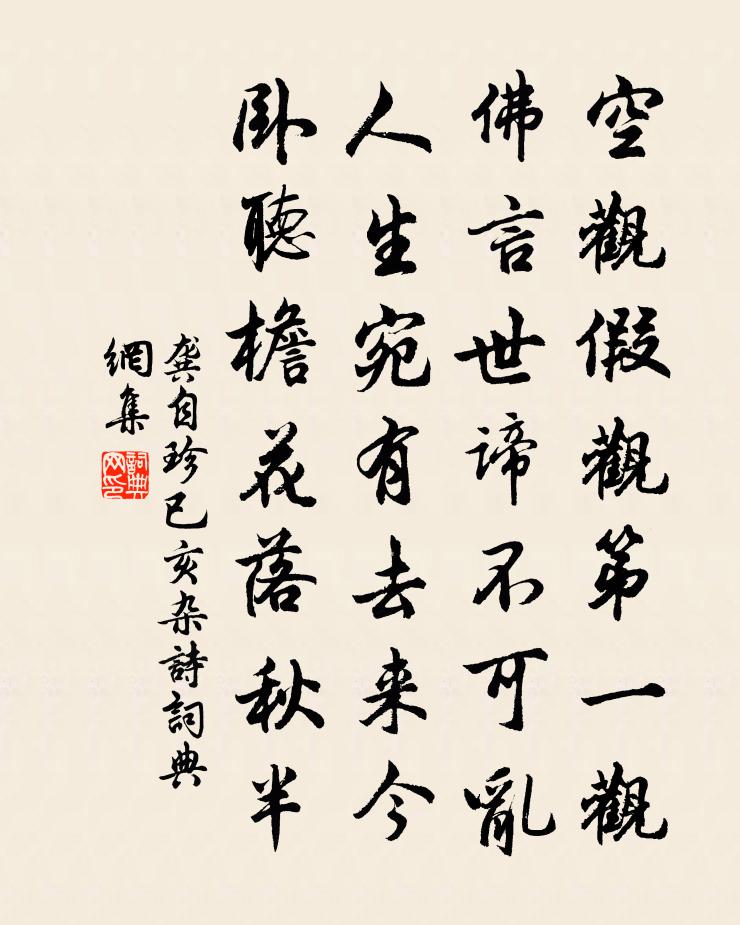 空觀假觀第一觀
佛言世諦不可亂
人生宛有去来今
卧聽檐花落秋半
龔自珍己亥杂詩詞典
網集
詞典
网印